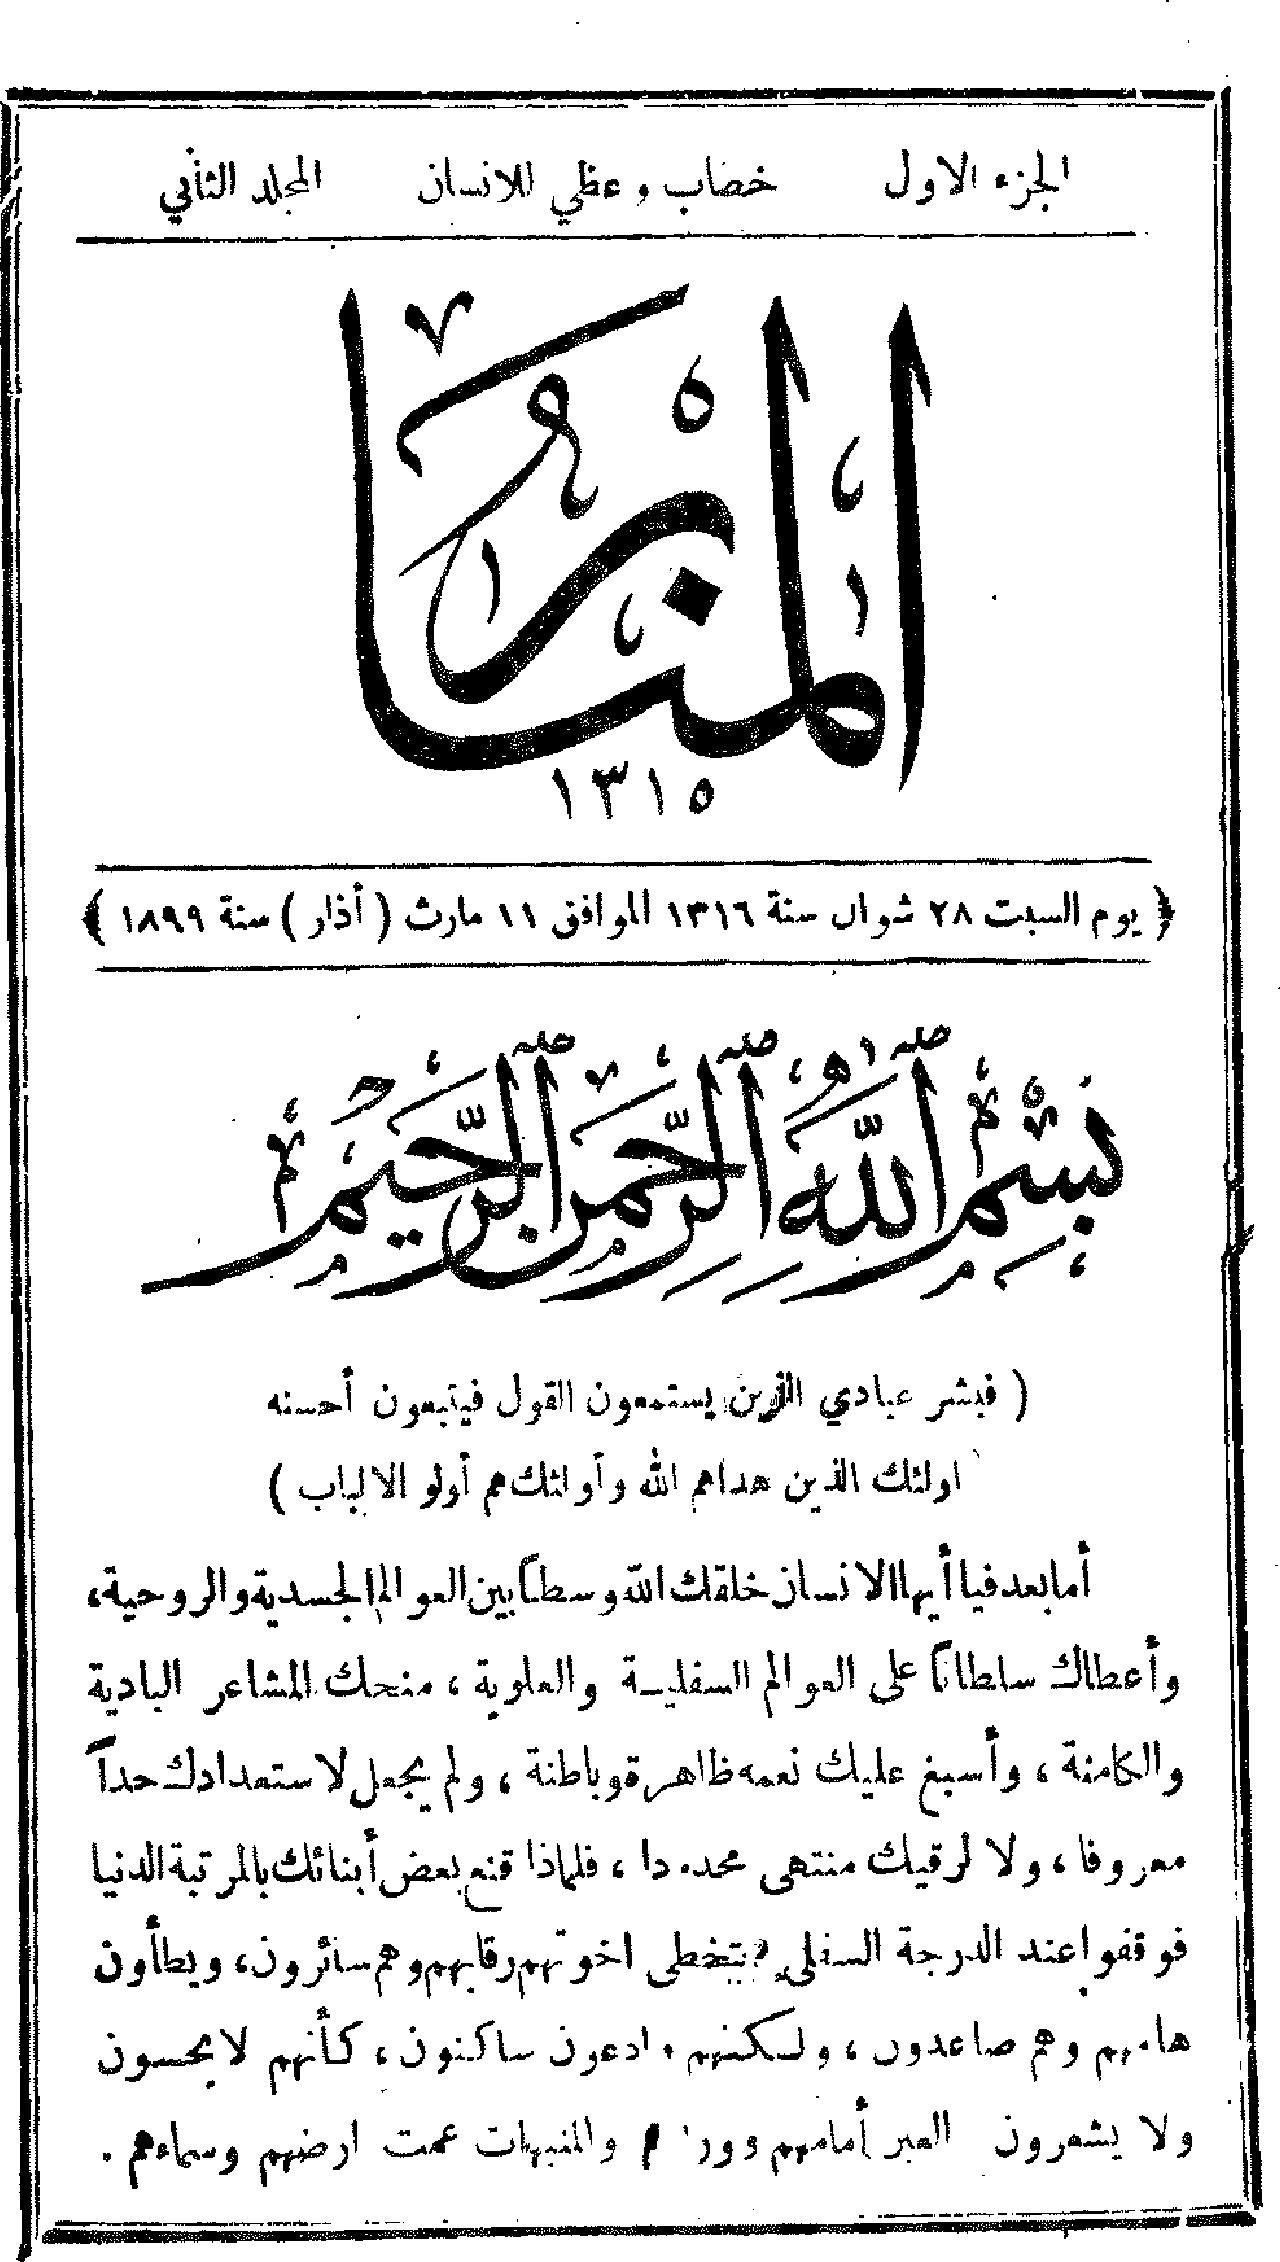 الجزء الاول خطاب وعظي للانسان المجلد الثاني
المنار
١٣١٥
﴿ يوم السبت ٢٨ شوال سنة ١٣١٦ الموافق ١١ مارث ( أذار ) سنة ١٨٩٩ ﴾
بِسْمِ اللَّهِ الرَّحْمٰنِ الرَّحِيمِ
( فبشر عبادي الذين يستمعون القول فيتبعون أحسنه
اولئك الذين هداهم الله وأولئك هم أولو الالباب )
أما بعد فيا أيها الانسان خلقك الله وسطاً بين العوالم الجسدية والروحية،
وأعطاك سلطاناً على العوالم السفليـة والعلوية ، منحك المشاعر البادية
والكامنة ، وأسبغ عليك نعمه ظاهرة وباطنة ، ولم يجعل لاستعدادك حداً
معروفا ، ولا لرقيك منتهى محدودا ، فلماذا قنع بعض أبنائك بالمرتبة الدنيا
فوقفوا عند الدرجة السفلى ؟ يتخطى اخوتهم رقابهم وهم سائرون، ويطأون
هامهم وهم صاعدون ، ولـكنهم وادعون ساكنون ، كأنهم لا يحسون
ولا يشعرون العبر أمامهم والمنبهات عمت ارضهم وسماءهم .